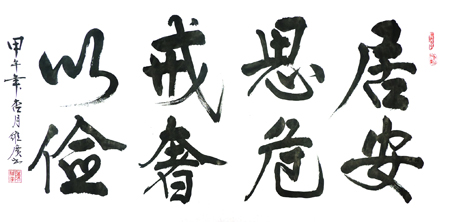 居安
思危
戒奢
以俭
甲午年